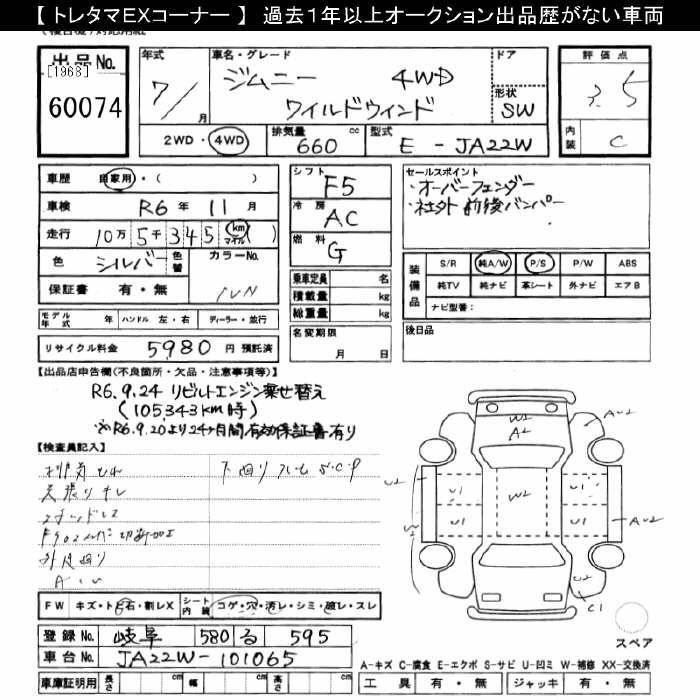 【 トレタマEXコーナー 】 過去1年以上オークション出品歴がない車両
出品No. [1968] 60074
年式 7/ 月
車名・グレード ジムニー 4WD ワイルドウィンド
ドア
形状 SW
2WD・4WD
排気量 660 cc
型式 E - JA22W
評価点 3.5
内装 C
車歴 自家用・( )
車検 R6年 11月
走行 10万5千345 km マイル ( )
色 シルバー 色替
カラーNo.
保証書 有・無
モデル年式 年 ハンドル 左・右 ディーラー・並行
リサイクル料金 5980 円 預託済
シフト F5
冷房 AC
燃料 G
乗車定員 名
積載量 kg
総重量 kg
名変期限
月 日
セールスポイント
・オーバーフェンダー
・社外前後バンパー
装備品
S/R 純A/W P/S P/W ABS
純TV 純ナビ 革シート 外ナビ エアB
ナビ型番:
後日品
【出品店申告欄(不良箇所・欠品・注意事項等)】
R6.9.24 リビルトエンジン乗せ替え
(105343km時)
※R6.9.20より24ヶ月間有効保証書有り
【検査員記入】
FW キズ・トビ石・割レX
シート内装 コゲ・穴・汚レ・シミ・破レ・スレ
登録No. 岐阜 580 る 595
車台No. JA22W-101065
車庫証明用 長さ cm 幅 cm 高さ cm
W2
A2
W2
U1
U1
U1
U1
AU2
AU2
U2
W2
U2
C1
スペア
A-キズ C-腐食 E-エクボ S-サビ U-凹ミ W-補修 XX-交換済
工具 有・無 ジャッキ 有・無